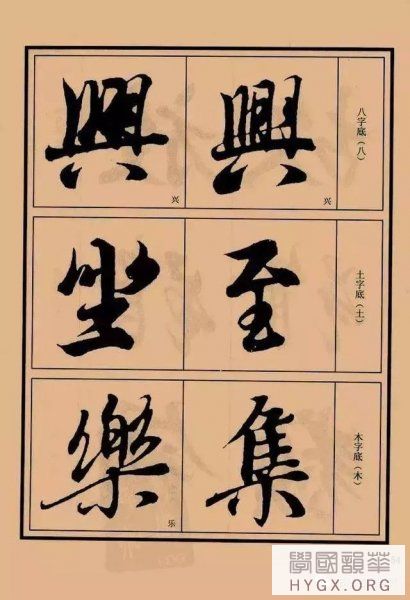 八字底（八）
興 兴
興 兴
土字底（土）
至
坐
木字底（木）
集
樂 乐
華韻國學
HYGX.ORG
54